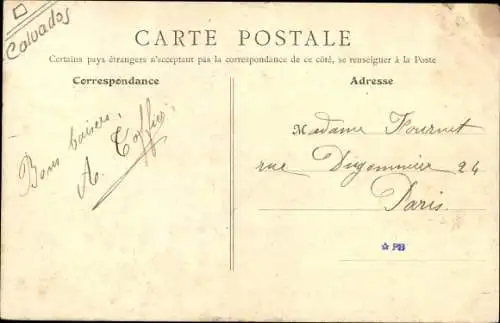 Calvados
CARTE POSTALE
Certains pays étrangers n'acceptant pas la correspondance de ce côté, se renseigner à la Poste
Correspondance
Bons baisers,
A.
Adresse
Madame Fournet
rue Dugommier 24
Paris.
PB